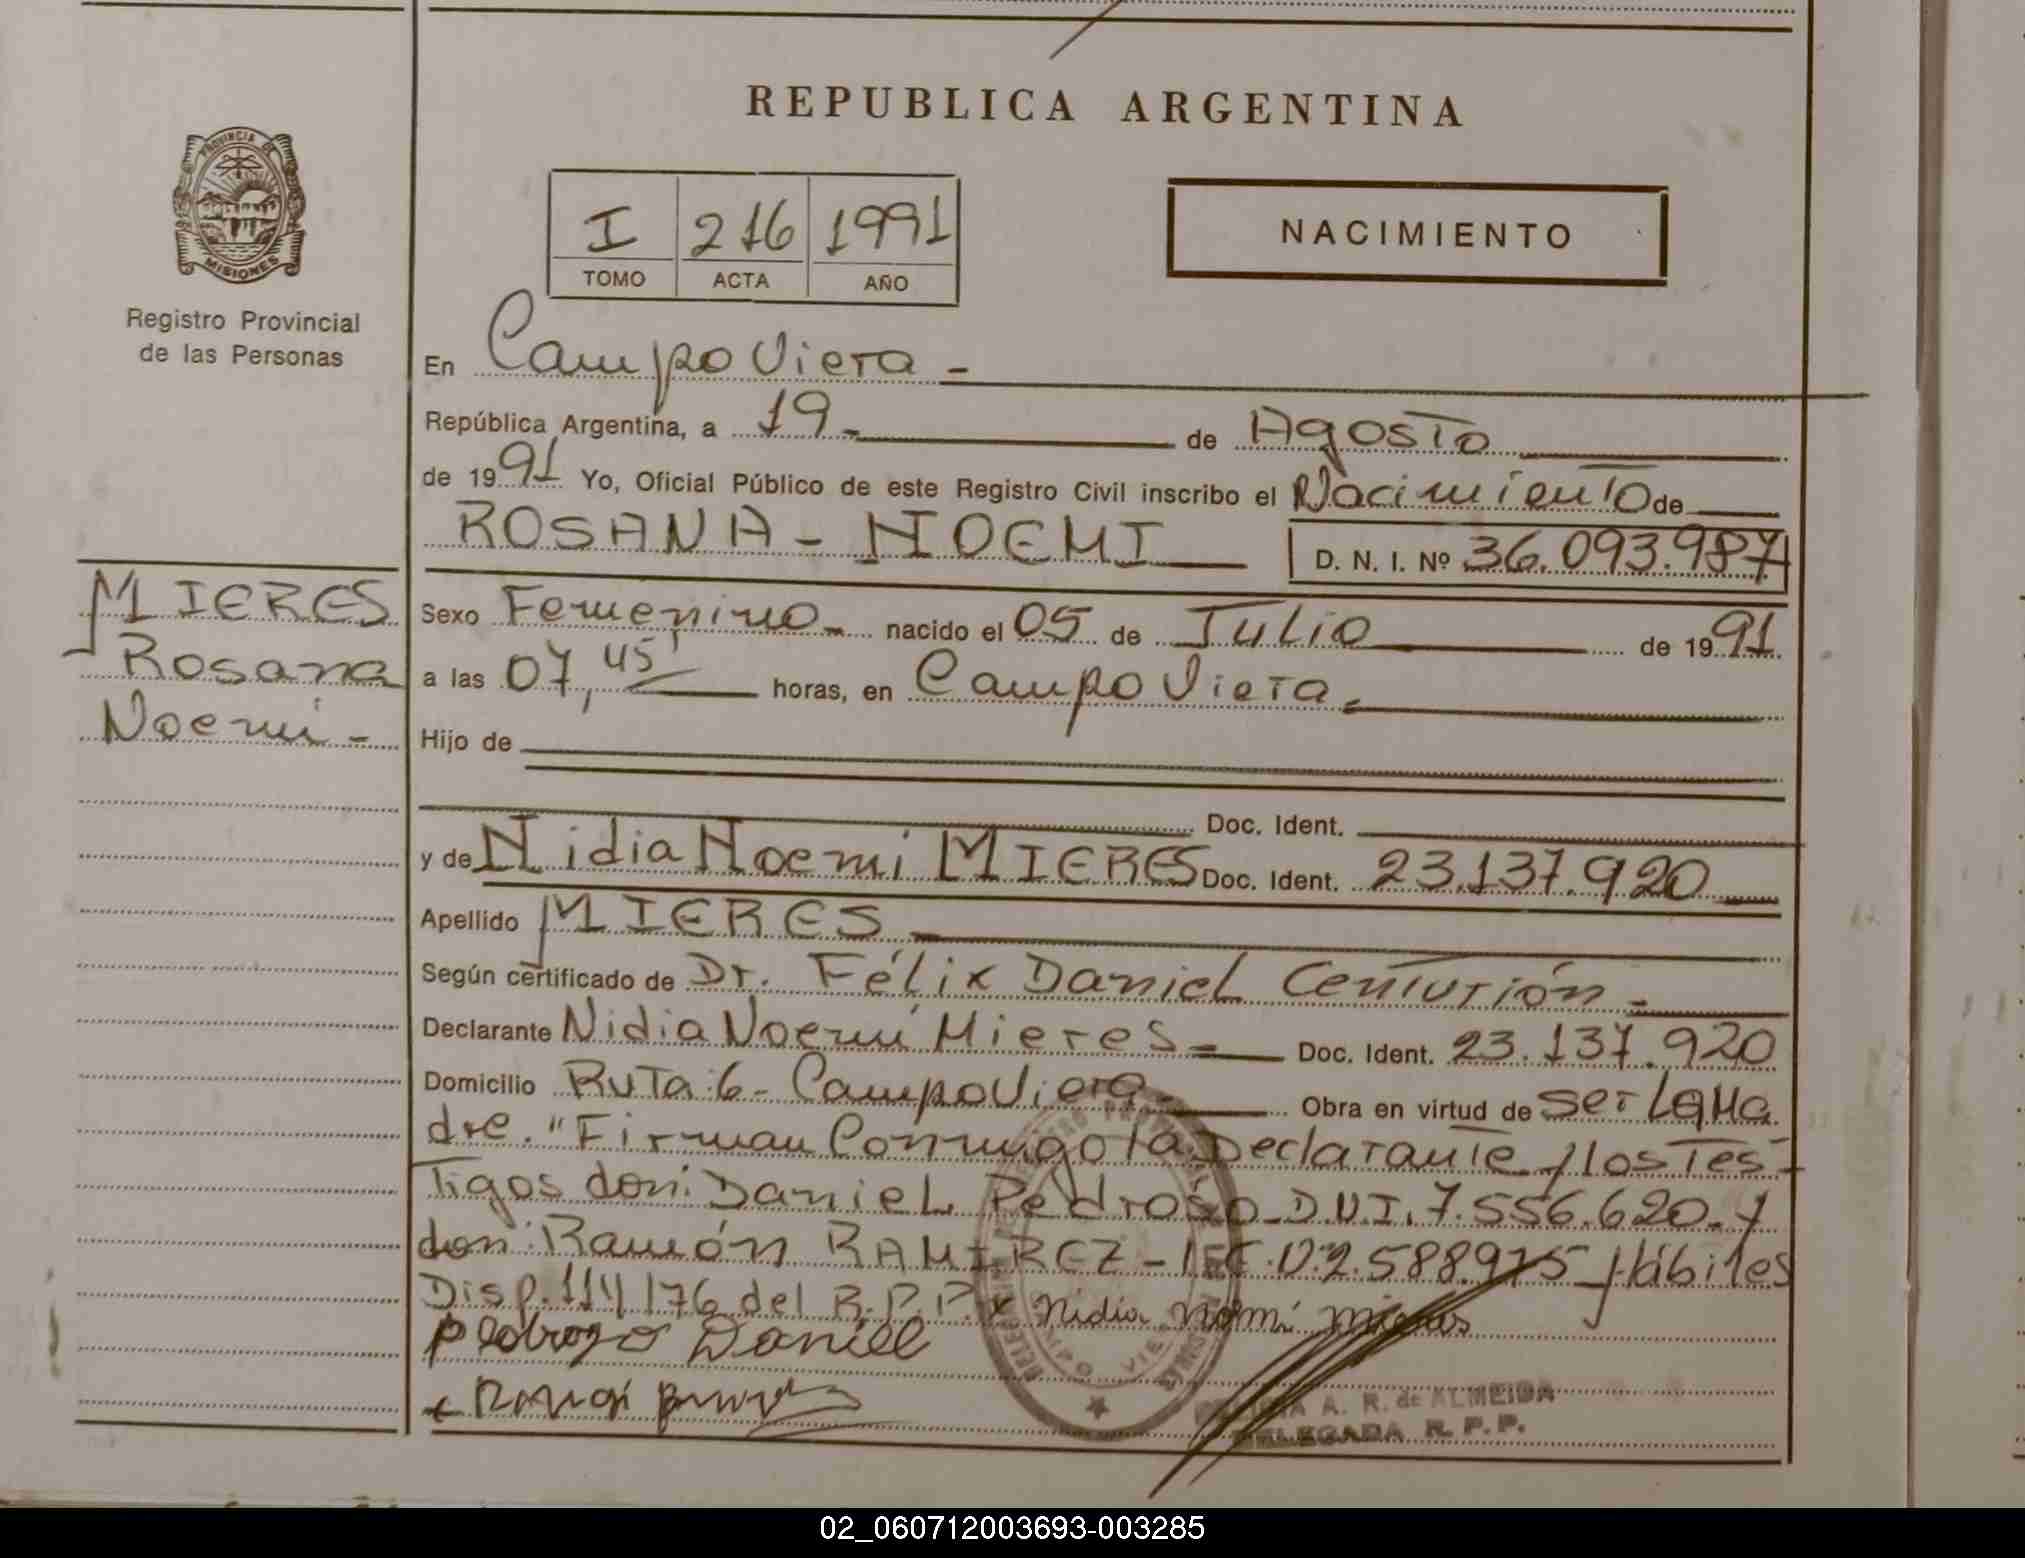 REPUBLICA ARGENTINA
PROVINCIA DE
MISIONES
Registro Provincial
de las Personas
I 216 1991
TOMO ACTA AÑO
NACIMIENTO
En Campo Viera -
República Argentina, a 19 - de Agosto
de 1991 Yo, Oficial Público de este Registro Civil inscribo el Nacimiento de
ROSANA - NOEMI D. N. I. Nº 36.093.987
MIERES
Rosana
Noemi -
Sexo Femenino - nacido el 05 de Julio de 1991
a las 07,45' horas, en Campo Viera -
Hijo de
Doc. Ident.
y de Nidia Noemi MIERES Doc. Ident. 23.137.920
Apellido MIERES
Según certificado de Dr. Félix Daniel Centurión -
Declarante Nidia Noemi Mieres - Doc. Ident. 23.137.920
Domicilio Ruta 6 - Campo Viera - Obra en virtud de ser La Ma
dre. "Firman Conmigo la Declarante y los Tes-
Tigos don: Daniel Pedroso D.N.I. 7.556.620 - y
don: Ramón RAMIREZ - 2.588.975 Hábiles
Disp. 114/76 del R.P.P. x Nidia Noemi Mieres
Pedrozo Daniel
A. R. de ALMEIDA
DELEGADA R. P. P.
02_060712003693-003285